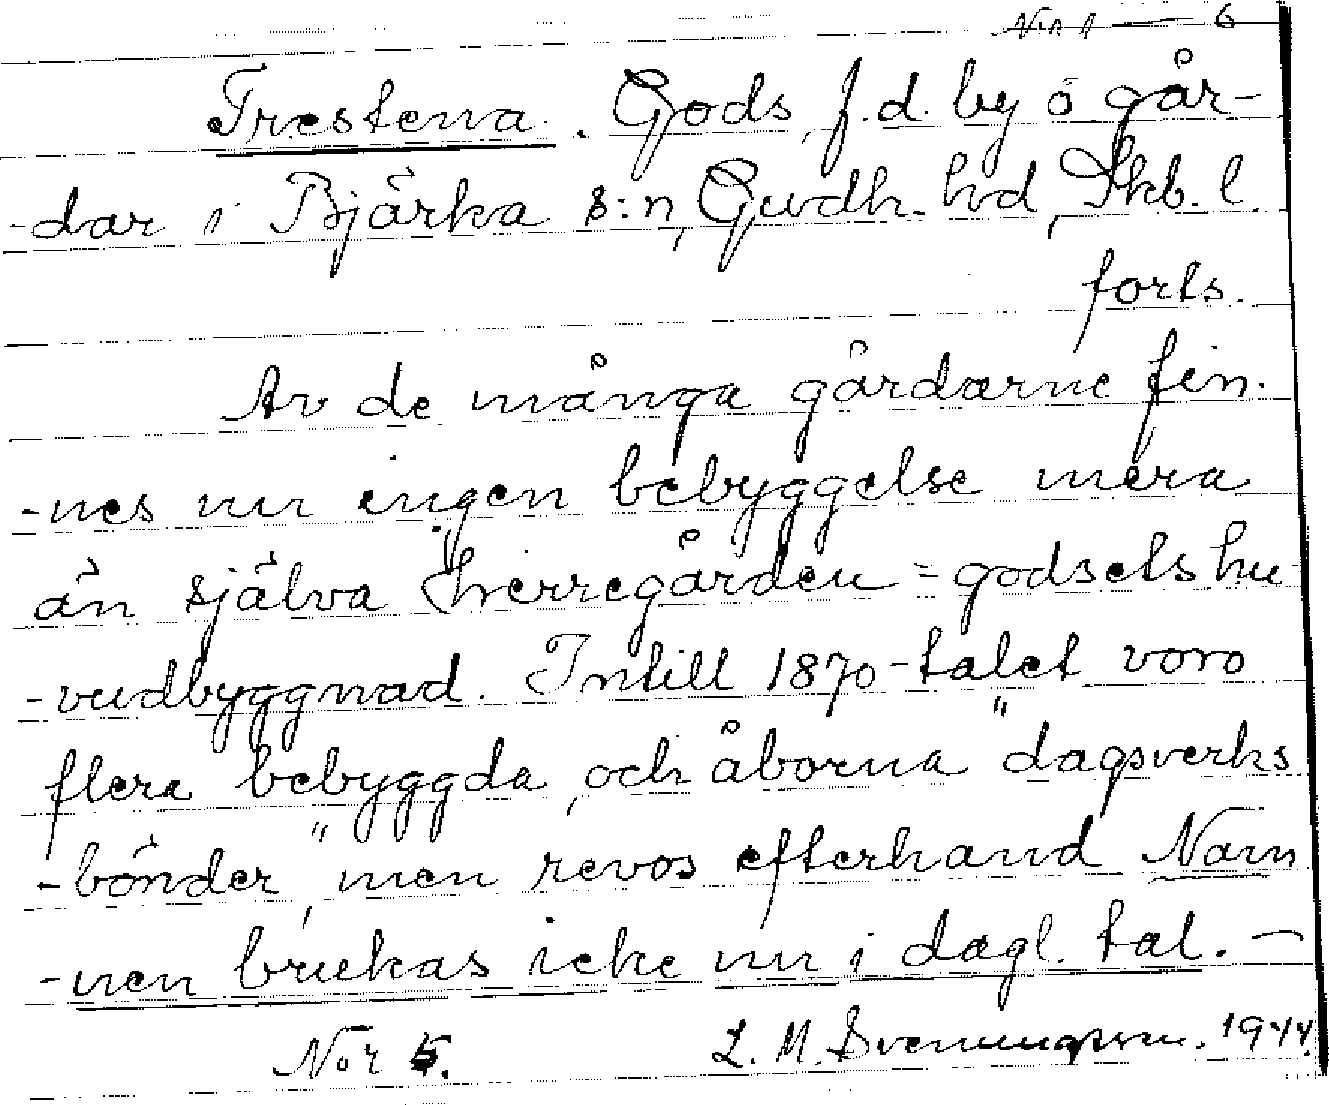 Nor 1 — 6
Trestena. Gods, f.d. by o går-
-dar i Bjärka s:n, Gudh. hd, Skb. l.
forts.
Av de många gårdarne fin-
-nes nu ingen bebyggelse mera
än själva herregården = godsets hu
-vudbyggnad. Intill 1870-talet voro
flera bebyggda, och åborna "dagsverks
-bönder", men revos efterhand Nam
-nen brukas icke nu i dagl. tal. —
Nor 5. L. M. Svenungsson. 1944.